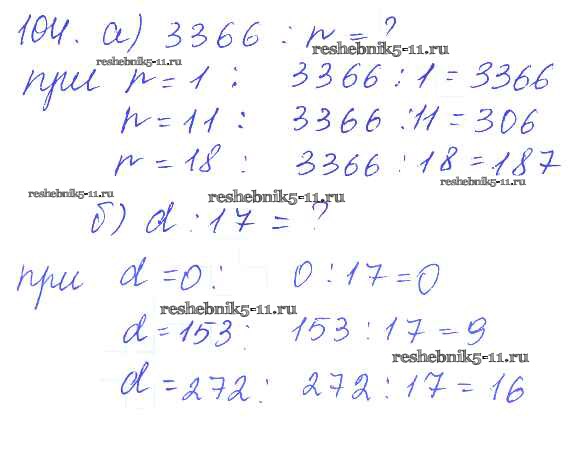 104. а) 3366 : n = ?
reshebnik5-11.ru
reshebnik5-11.ru
при n = 1 : 3366 : 1 = 3366
n = 11 : 3366 : 11 = 306
n = 18 : 3366 : 18 = 187
reshebnik5-11.ru
reshebnik5-11.ru
reshebnik5-11.ru
б) d : 17 = ?
при d = 0 : 0 : 17 = 0
reshebnik5-11.ru
d = 153 : 153 : 17 = 9
reshebnik5-11.ru
d = 272 : 272 : 17 = 16